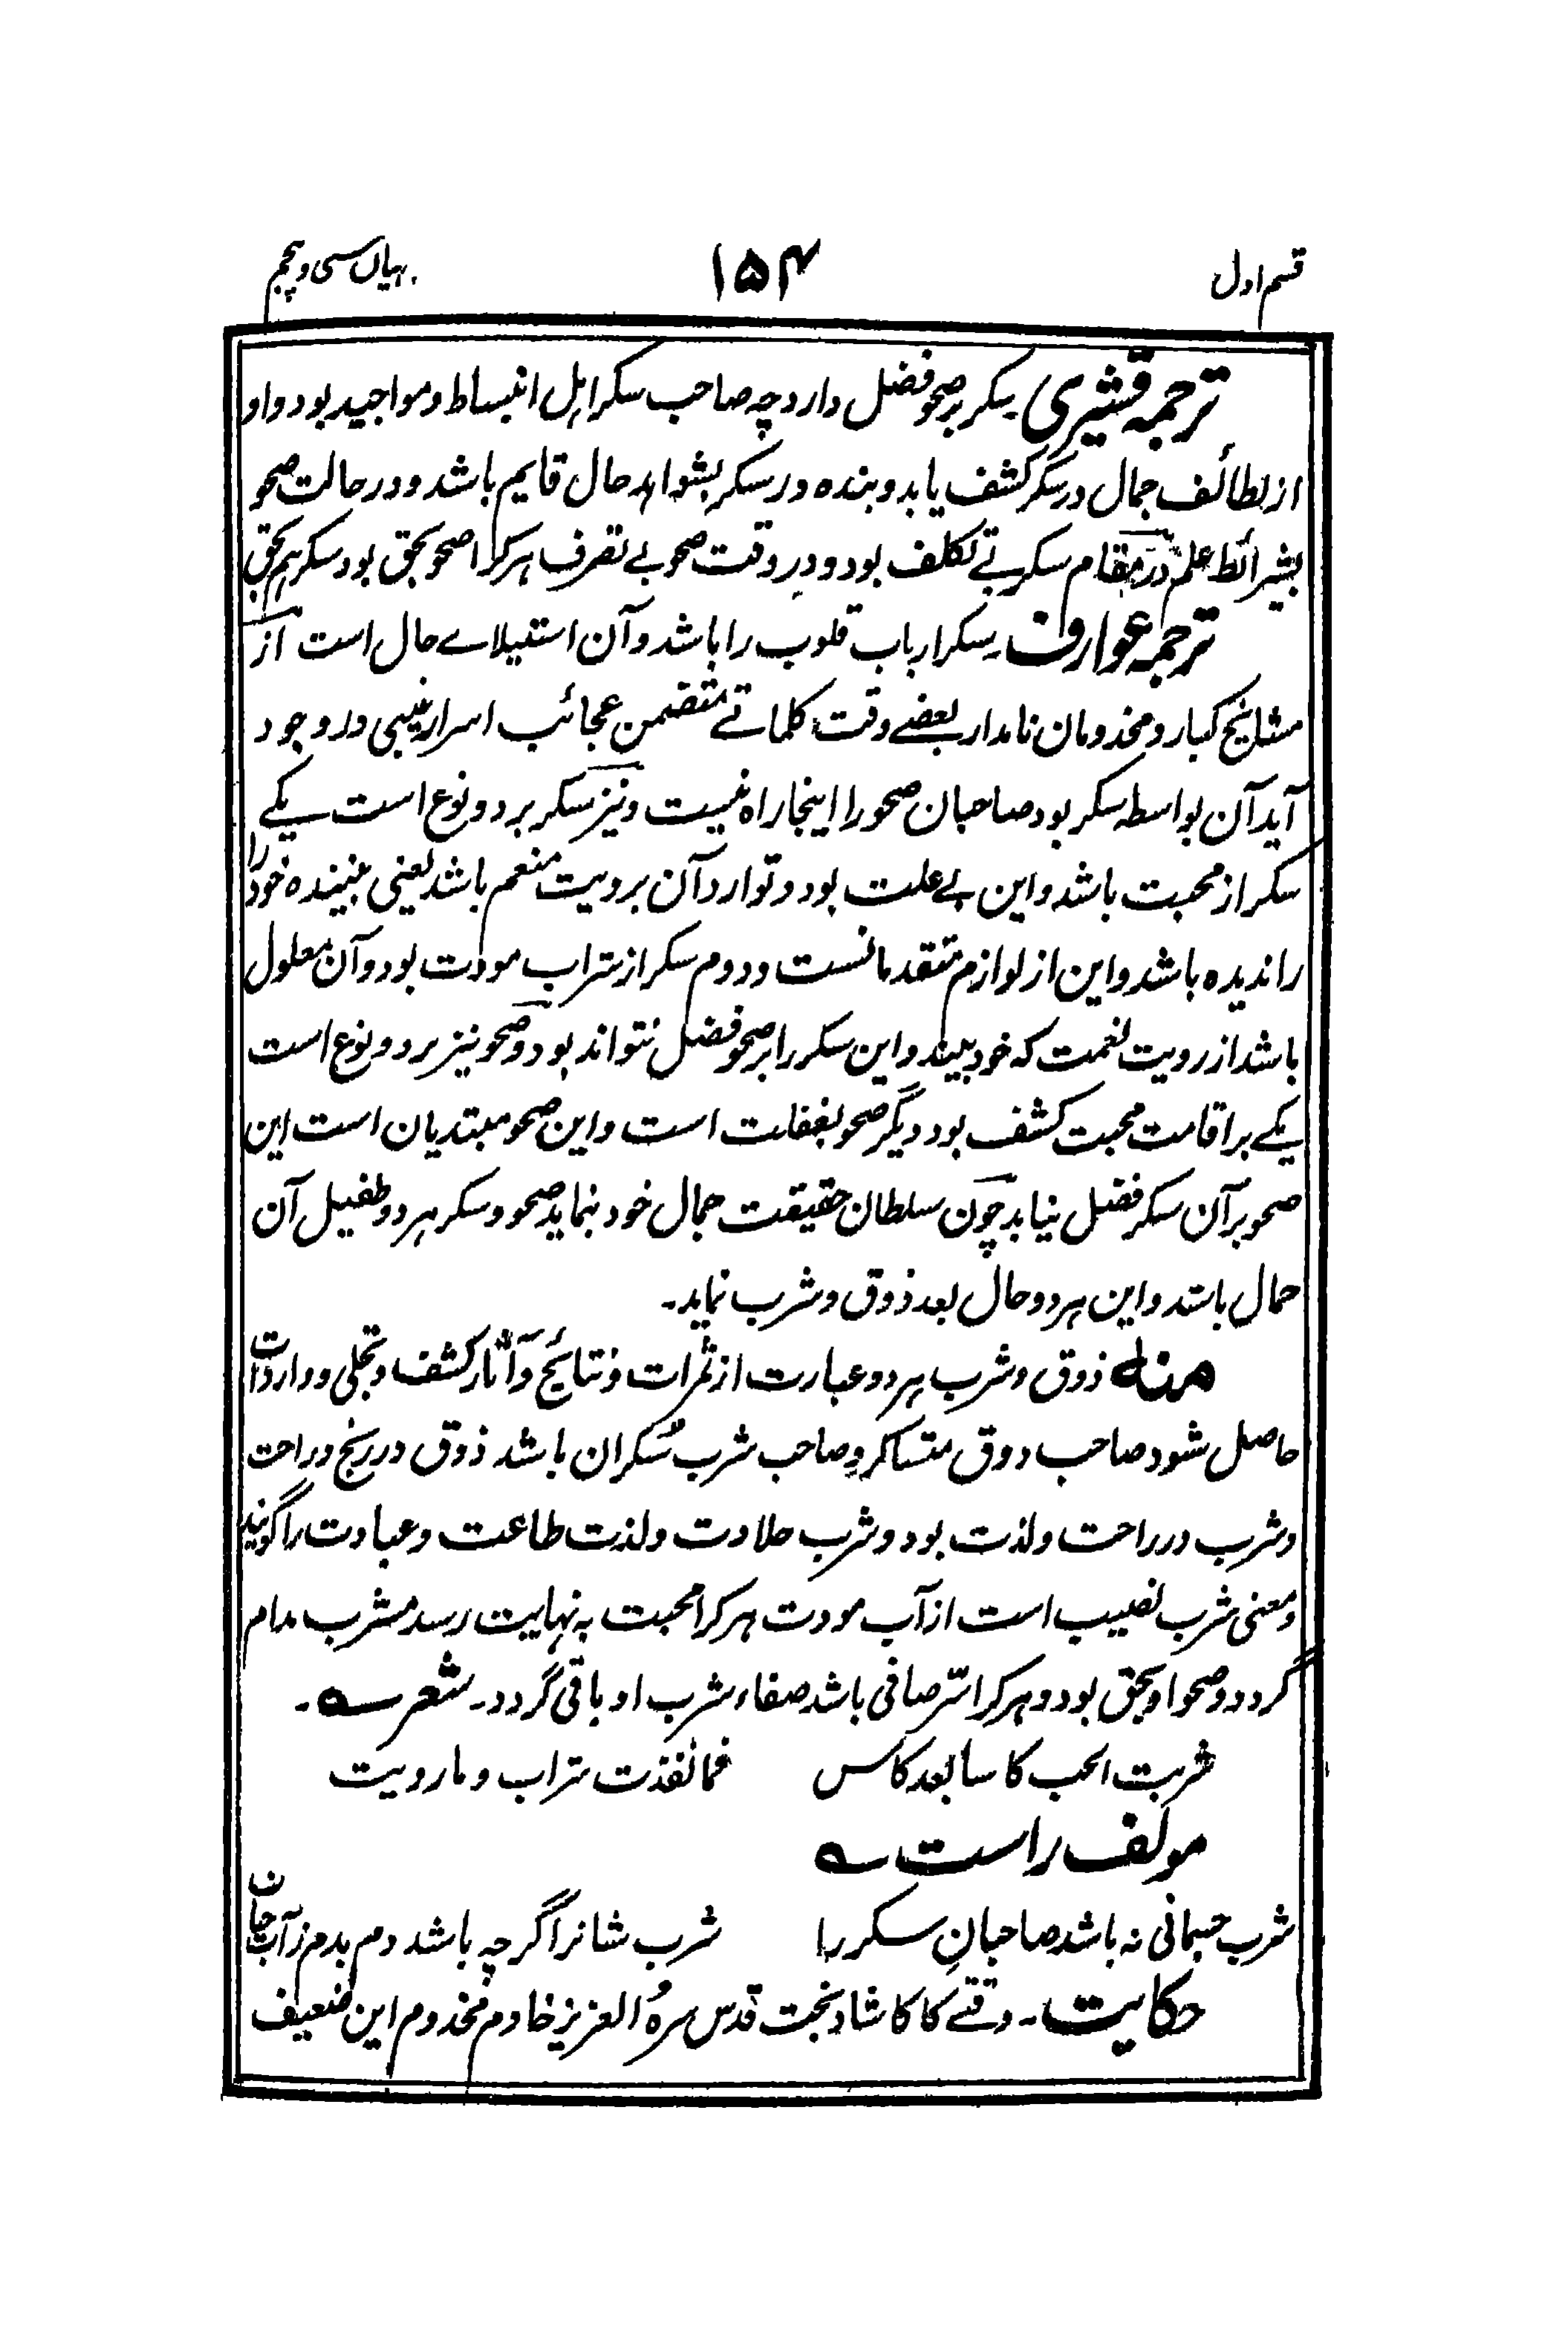 قسم اول
۱۵۴
بیاں سی و پنجم
ترجمہ قشیری۔ سکر بر صحو فضل دارد چہ صاحب سکر اہل انبساط و مواجید بود و او
از لطائف جمال در سکر کشف یابد و بندہ در سکر بشواہد حال قایم باشد و در حالت صحو
بشرائط علم در مقام سکر بے تکلف بود و در وقت صحو بے تصرف ہر کرا صحو بحق بود سکر ہم بحق
ترجمہ عوارف۔ سکر ارباب قلوب را باشد و آن استیلاے حال است از
مشایخ کبار و مخدومان نامدار بعضے وقت کلماتے متضمن عجائب اسرار غیبی در وجود
آید آن بواسطہ سکر بود صاحبان صحو را اینجا راہ نیست و نیز سکر بر دو نوع است یکے
سکر از محبت باشد و این بے علت بود و توارد آن برویت منعم باشد یعنی بینندہ خود را
را ندیدہ باشد و این از لوازم متقدمانست و دوم سکر از شراب مودت بود و آن معلول
باشد از رویت نعمت کہ خود بیند و این سکر را بر صحو فضل نتواند بود و صحو نیز بر دو نوع است
یکے بر اقامت محبت کشف بود دیگر صحو بغفلت است و این صحو مبتدیان است این
صحو بر آن سکر فضل نیابد چون سلطان حقیقت جمال خود بنماید صحو و سکر ہر دو طفیل آن
جمال باشد و این ہر دو حال بعد ذوق و شرب نماید۔
منہ ذوق و شرب ہر دو عبارت از ثمرات و نتایج و آثار کشف و تجلی و واردات
حاصل شود صاحب ذوق متساکر و صاحب شرب سُکران باشد ذوق در رنج و راحت
و شرب در راحت و لذت بود و شرب حلاوت و لذت طاعت و عبادت را گویند
و معنی شرب نصیب است از آب مودت ہر کرا محبت بہ نہایت رسد مشرب مدام
گردد و صحو او بحق بود و ہر کرا سّر صافی باشد صفاء شرب او باقی گردد۔ شعر ؎۔
شربت الحب کاسا بعد کاس    فما نفذت شراب و ما رویت
مولف راست ؎
شرب جسمانی نہ باشد صاحبانِ سکر را    شرب شانرا گرچہ باشد دم بدم ز آب جان
حکایت۔ وقتے کاکا شاد بخت قدس سرہُ العزیز خادم مخدوم این ضعیف